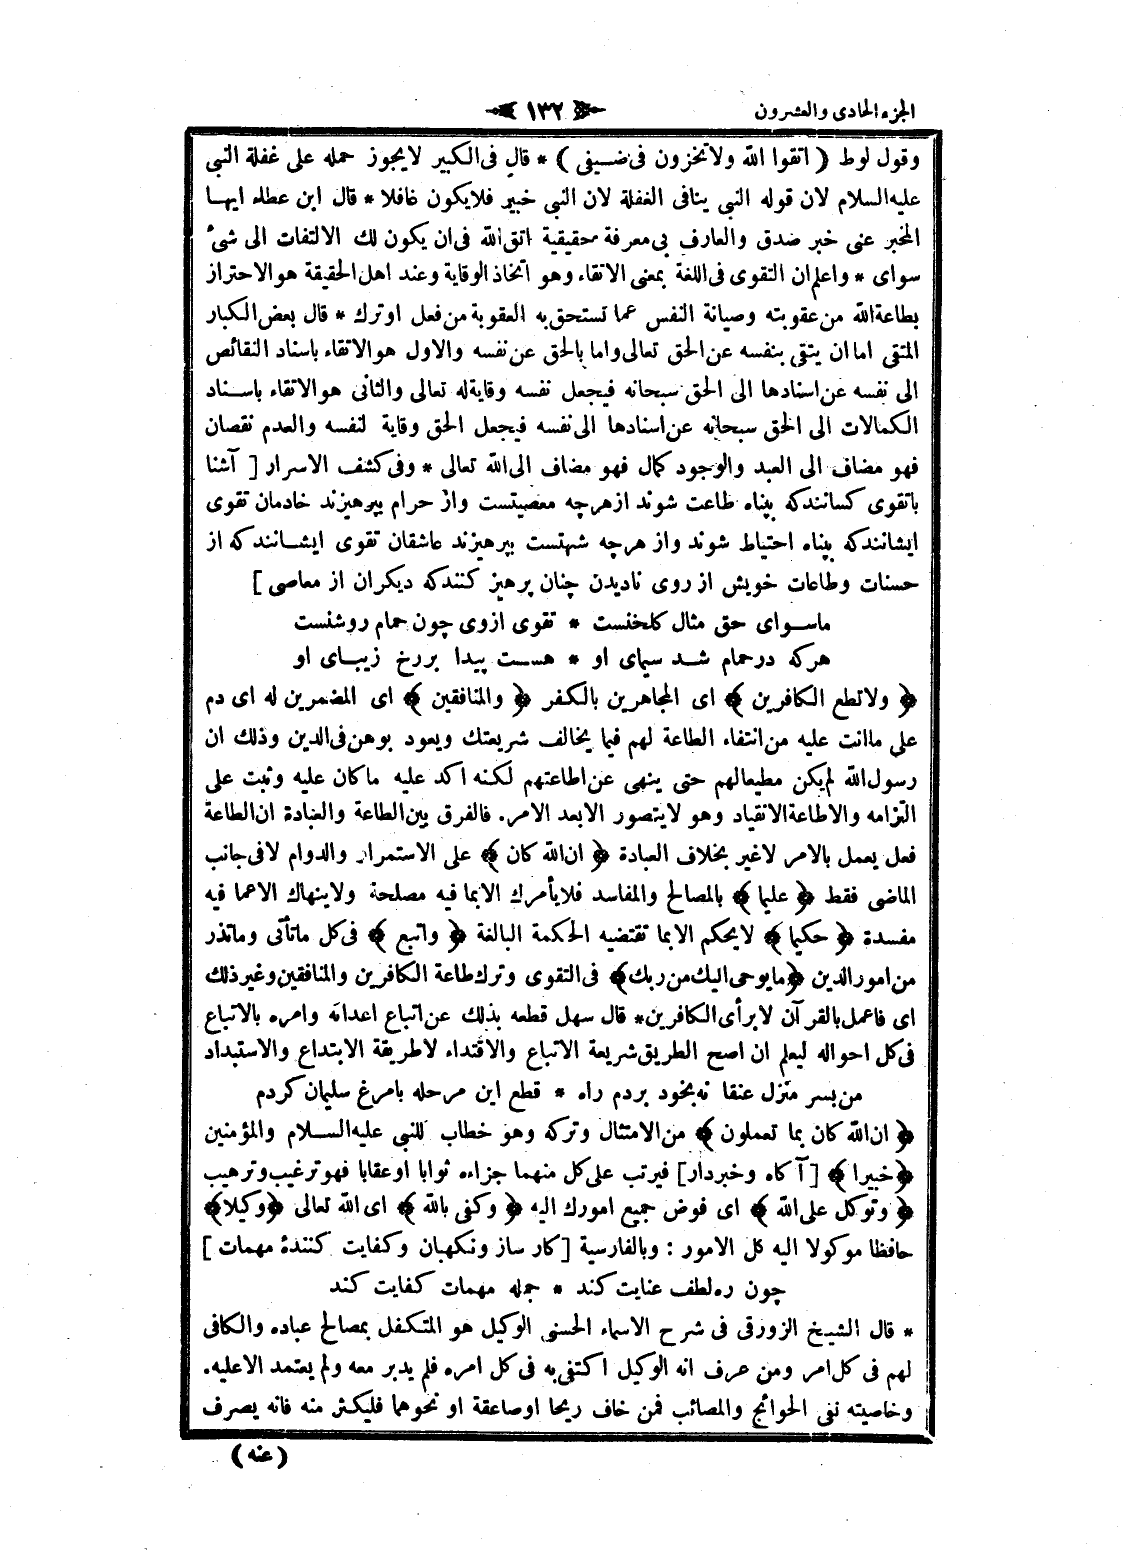 الجزء الحادى والعشرون
١٣٢
وقول لوط ( اتقوا الله ولاتخزون فى ضيفى ) * قال فى الكبير لايجوز حمله على غفلة النبى
عليه السلام لان قوله النبى ينافى الغفلة لان النبى خبير فلايكون غافلا * قال ابن عطاء ايها
المخبر عنى خبر صدق والعارف بى معرفة حقيقية اتق الله فى ان يكون لك الالتفات الى شئ
سواى * واعلم ان التقوى فى اللغة بمعنى الاتقاء وهو اتخاذ الوقاية وعند اهل الحقيقة هو الاحتراز
بطاعة الله من عقوبته وصيانة النفس عما تستحق به العقوبة من فعل او ترك * قال بعض الكبار
المتقى اما ان يتقى بنفسه عن الحق تعالى واما بالحق عن نفسه والاول هو الاتقاء باسناد النقائص
الى نفسه عن اسنادها الى الحق سبحانه فيجعل نفسه وقاية له تعالى والثانى هو الاتقاء باسناد
الكمالات الى الحق سبحانه عن اسنادها الى نفسه فيجعل الحق وقاية لنفسه والعدم نقصان
فهو مضاف الى العبد والوجود كمال فهو مضاف الى الله تعالى * وفى كشف الاسرار [ آشنا
باتقوى كسانندكه بپناه طاعت شوند ازهرچه معصيتست واز حرام بپرهيزند خادمان تقوى
ايشانندكه بپناه احتياط شوند واز هرچه شبهتست بپرهيزند عاشقان تقوى ايشانندكه از
حسنات وطاعات خويش از روى ناديدن چنان پرهيز كنندكه ديكران از معاصى ]
ماسواى حق مثال كلخنست * تقوى ازوى چون حمام روشنست
هركه درحمام شد سيماى او * هست پيدا بررخ زيباى او
﴿ ولاتطع الكافرين ﴾ اى المجاهرين بالكفر ﴿ والمنافقين ﴾ اى المضمرين له اى دم
على ماانت عليه من انتفاء الطاعة لهم فيما يخالف شريعتك ويعود بوهن فى الدين وذلك ان
رسول الله لم يكن مطيعا لهم حتى ينهى عن اطاعتهم لكنه اكد عليه ماكان عليه وثبت على
التزامه والاطاعة الانقياد وهو لايتصور الابعد الامر. فالفرق بين الطاعة والعبادة ان الطاعة
فعل يعمل بالامر لاغير بخلاف العبادة ﴿ ان الله كان ﴾ على الاستمرار والدوام لافى جانب
الماضى فقط ﴿ عليما ﴾ بالمصالح والمفاسد فلايأمرك الابما فيه مصلحة ولاينهاك الاعما فيه
مفسدة ﴿ حكيما ﴾ لايحكم الابما تقتضيه الحكمة البالغة ﴿ واتبع ﴾ فى كل ماتأتى وماتذر
من امور الدين ﴿ مايوحى اليك من ربك ﴾ فى التقوى وترك طاعة الكافرين والمنافقين وغير ذلك
اى فاعمل بالقرآن لابرأى الكافرين * قال سهل قطعه بذلك عن اتباع اعدائه وامره بالاتباع
فى كل احواله ليعلم ان اصح الطريق شريعة الاتباع والاقتداء لاطريقة الابتداع والاستبداد
من بسر منزل عنقا نه بخود بردم راه * قطع اين مرحله بامرغ سليمان كردم
﴿ ان الله كان بما تعملون ﴾ من الامتثال وتركه وهو خطاب للنبى عليه السلام والمؤمنين
﴿ خبيرا ﴾ [ آكاه وخبردار ] فيرتب على كل منهما جزاءه ثوابا او عقابا فهو ترغيب وترهيب
﴿ وتوكل على الله ﴾ اى فوض جميع امورك اليه ﴿ وكفى بالله ﴾ اى الله تعالى ﴿ وكيلا ﴾
حافظا موكولا اليه كل الامور : وبالفارسية [ كار ساز ونكهبان وكفايت كنندۀ مهمات ]
چون ره لطف عنايت كند * جمله مهمات كفايت كند
* قال الشيخ الزورقى فى شرح الاسماء الحسنى الوكيل هو المتكفل بمصالح عباده والكافى
لهم فى كل امر ومن عرف انه الوكيل اكتفى به فى كل امره فلم يدبر معه ولم يعتمد الاعليه.
وخاصيته نفى الحوائج والمصائب فمن خاف ريحا اوصاعقة او نحوهما فليكثر منه فانه يصرف
( عنه )